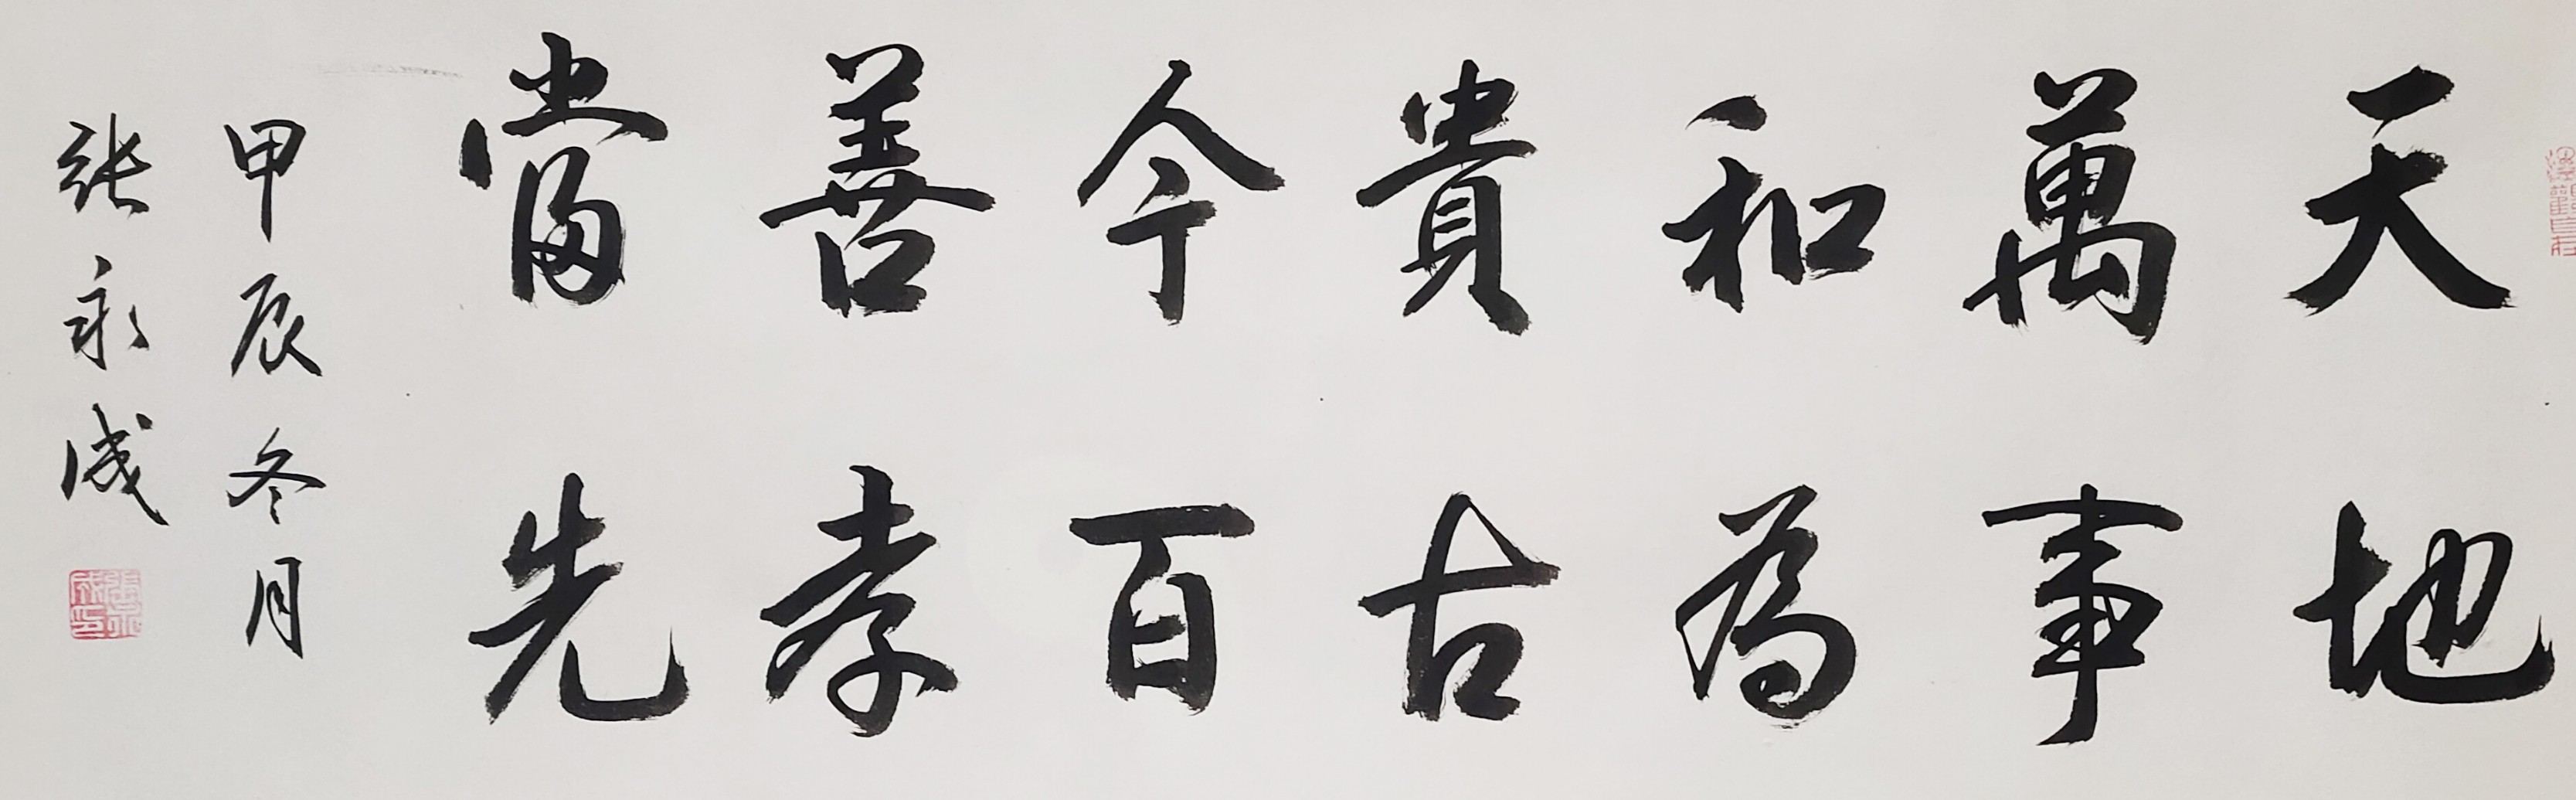 天地
萬事
和為
貴古
今百
善孝
當先
甲辰冬月
张永成